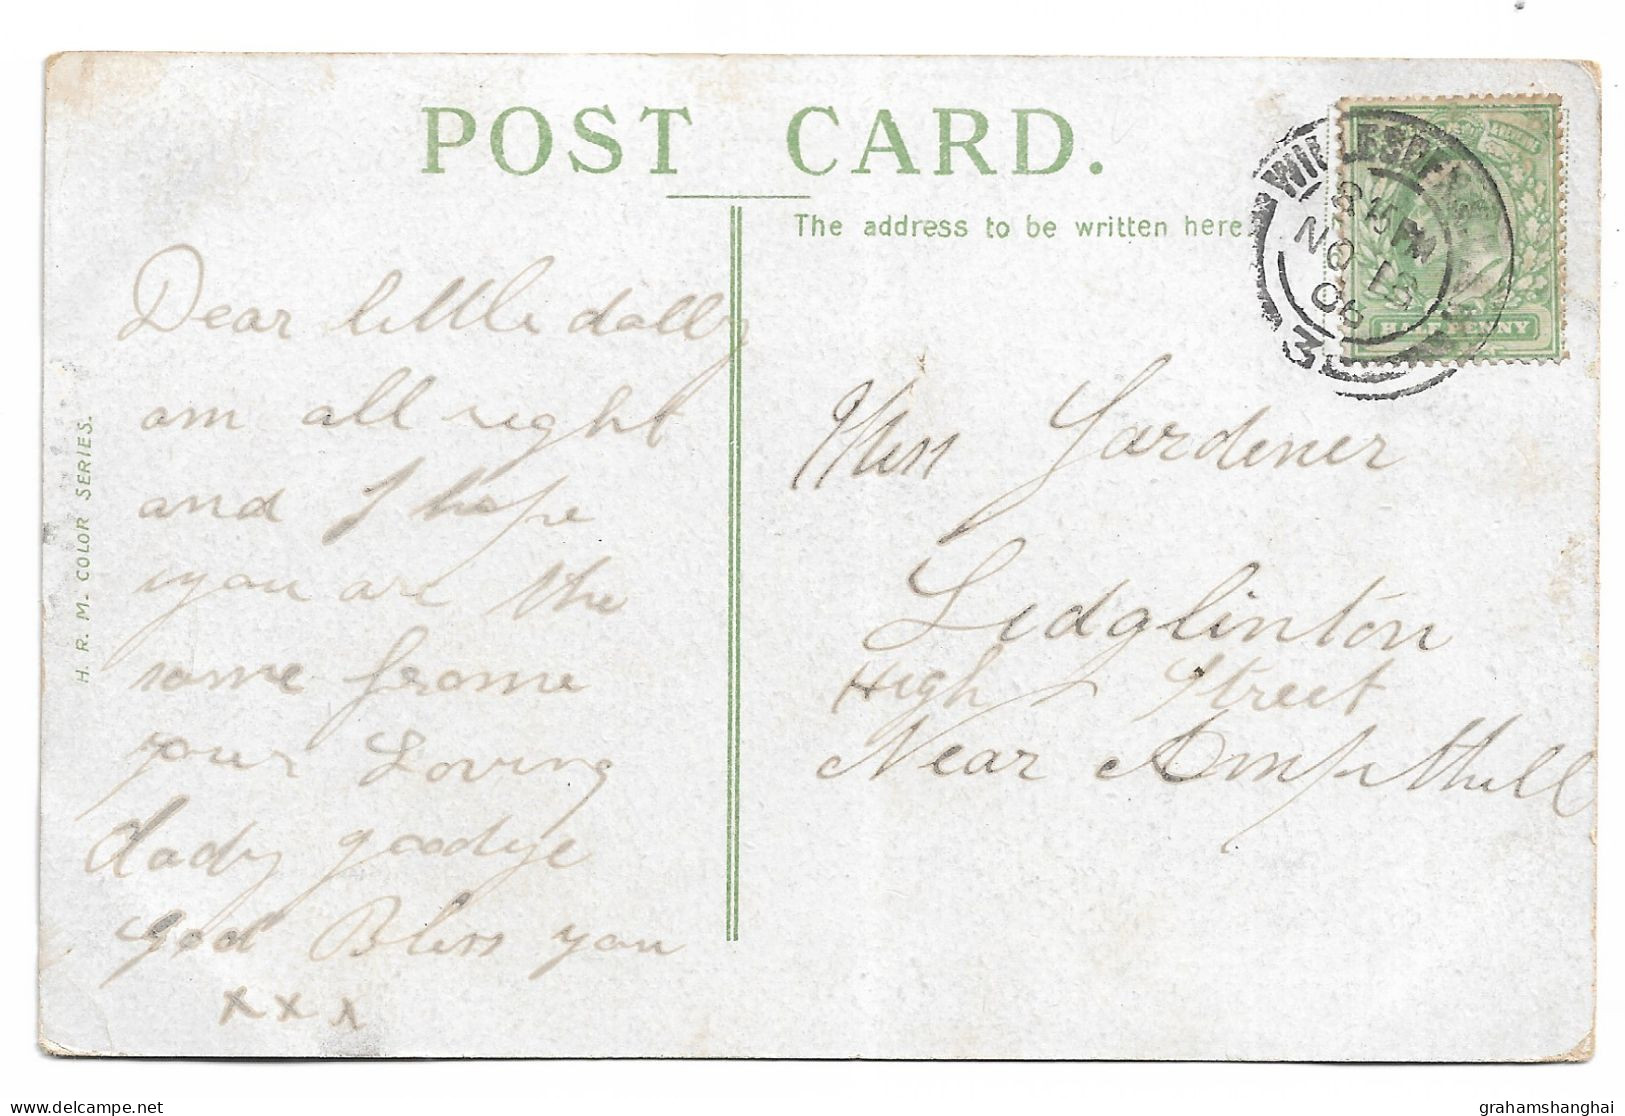 POST CARD.
The address to be written here.
Dear little dolly
am all right
and I hope
you are the
same frome
your Loving
dady goodye
god Bless you
x x x
H. R. M. COLOR SERIES.
WILLESDEN
8 15 PM
NO 19
06
3
HALF PENNY
Miss Gardener
Lidglinton
High Street
Near Ampthill
delcampe.net
grahamshanghai